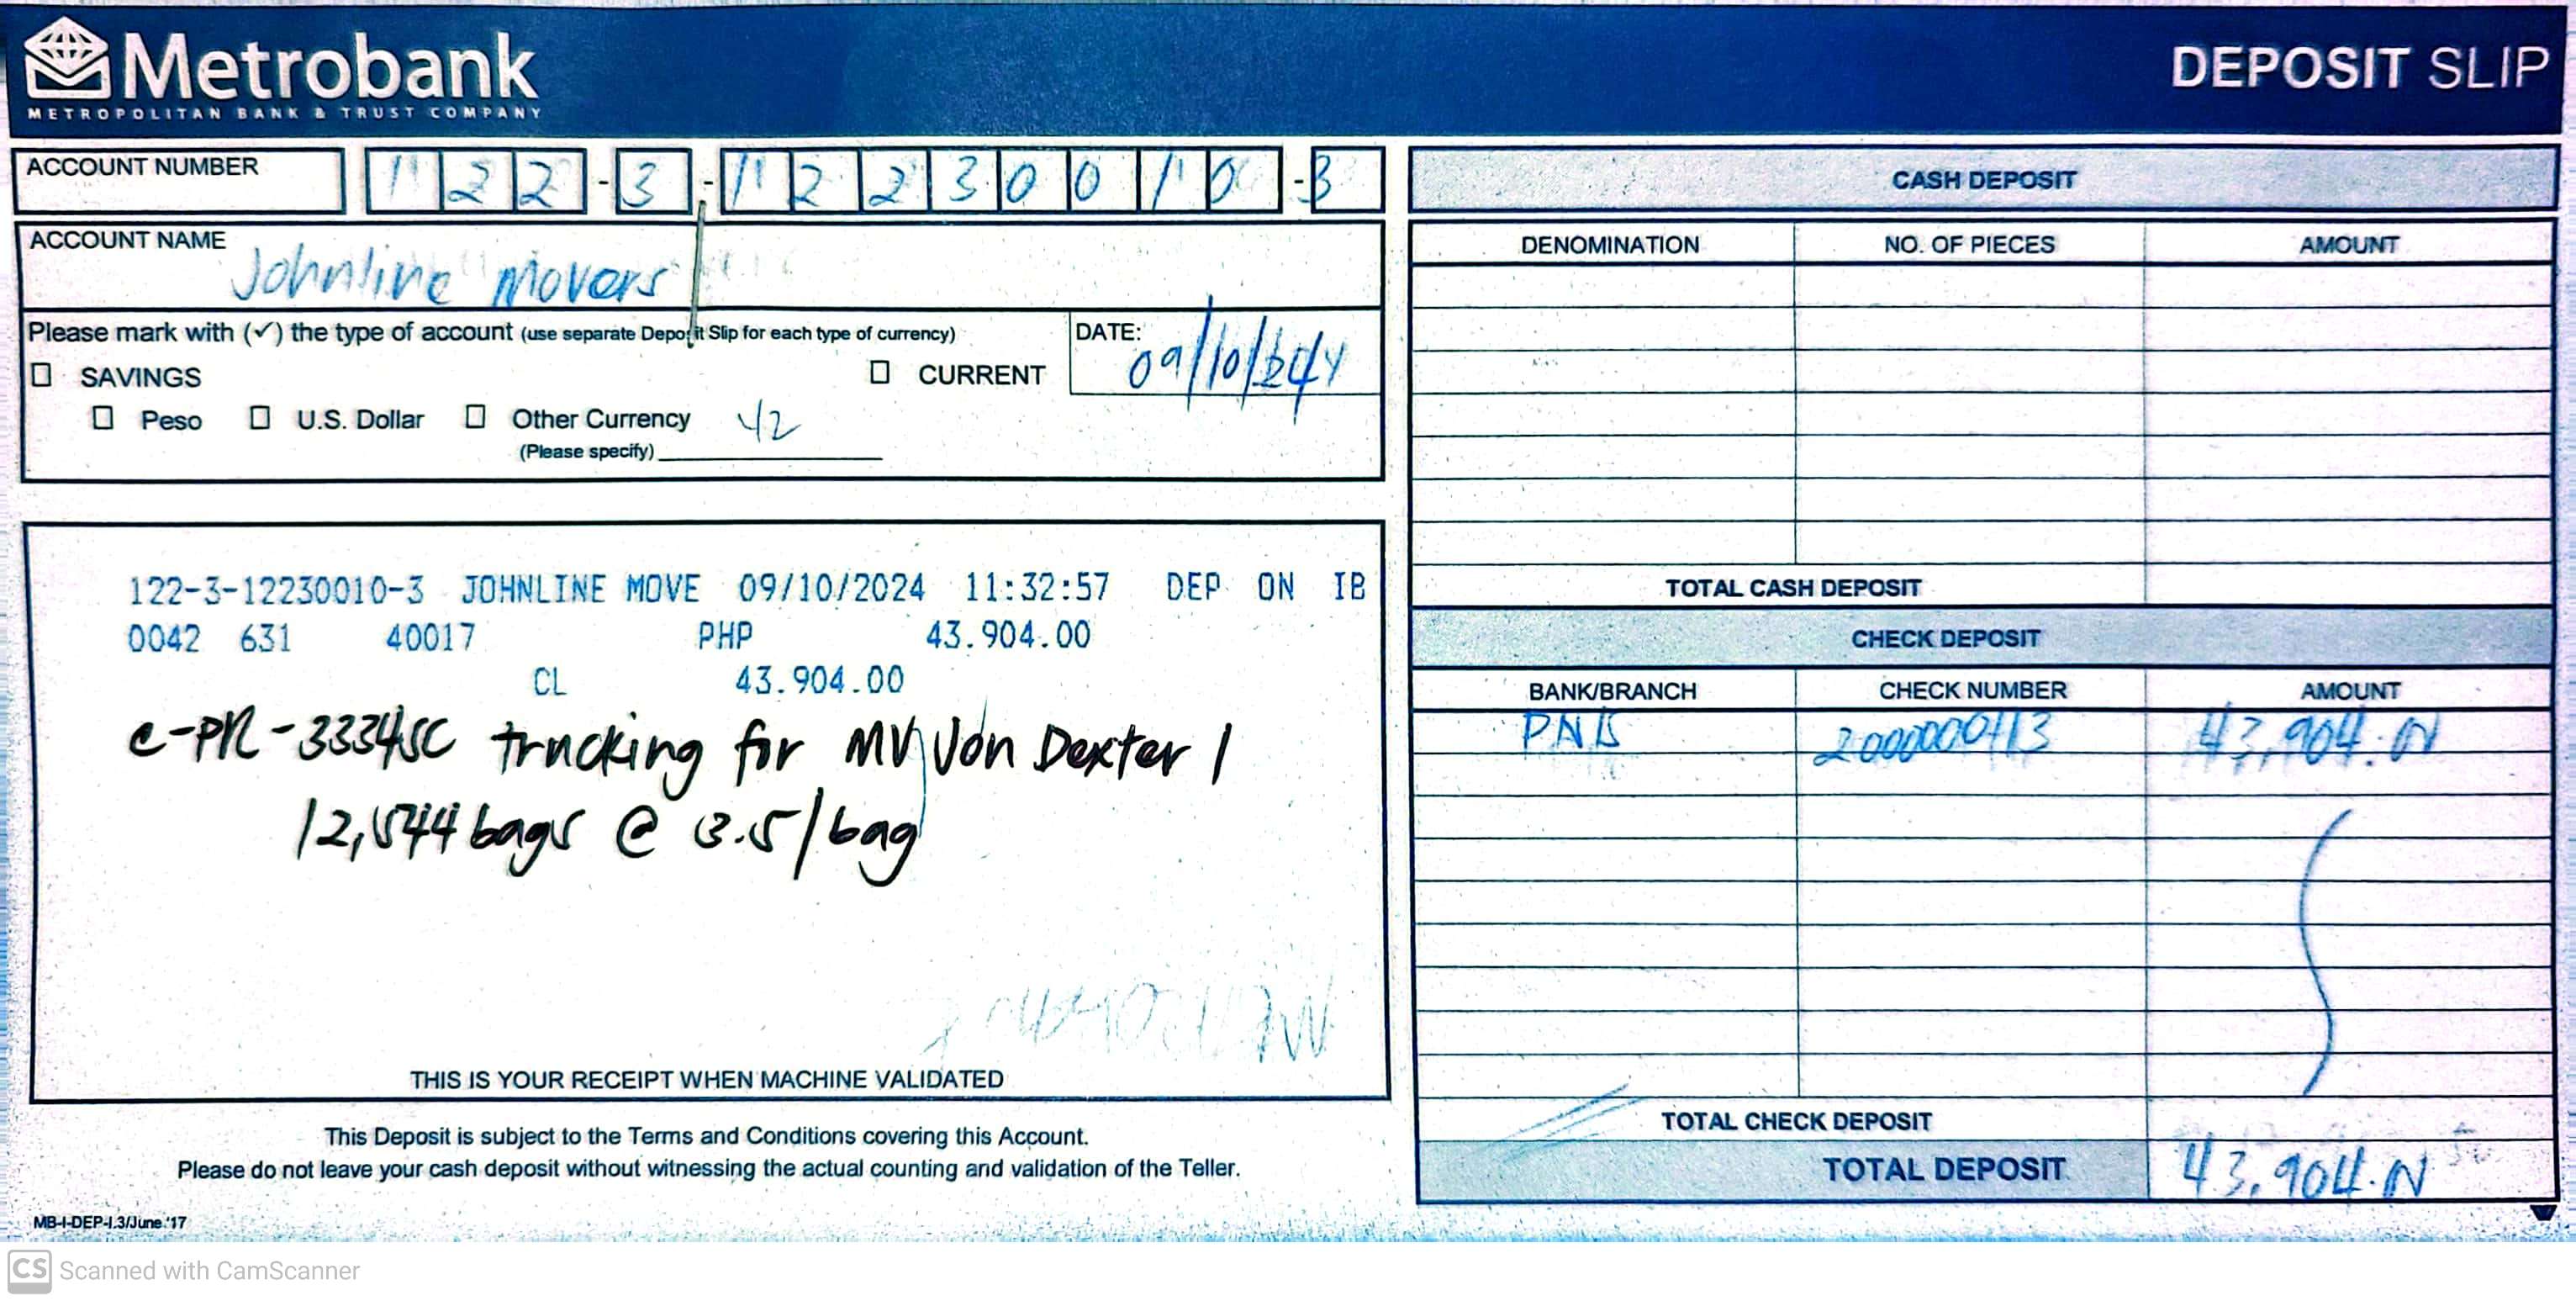 Metrobank
METROPOLITAN BANK & TRUST COMPANY
DEPOSIT SLIP
ACCOUNT NUMBER 1 2 2 - 3 - 1 2 2 3 0 0 1 0 - 3
ACCOUNT NAME
Johnline Movers
Please mark with (✓) the type of account (use separate Deposit Slip for each type of currency)
DATE:
09/10/24
SAVINGS
CURRENT
Peso U.S. Dollar Other Currency 42
(Please specify)
122-3-12230010-3 JOHNLINE MOVE 09/10/2024 11:32:57 DEP ON IB
0042 631 40017 PHP 43.904.00
CL 43.904.00
trucking for MV Von Dexter 1
12,544 bags @ 3.5/bag
THIS IS YOUR RECEIPT WHEN MACHINE VALIDATED
This Deposit is subject to the Terms and Conditions covering this Account.
Please do not leave your cash deposit without witnessing the actual counting and validation of the Teller.
MB-I-DEP-I.3/June.'17
CASH DEPOSIT
DENOMINATION NO. OF PIECES AMOUNT
TOTAL CASH DEPOSIT
CHECK DEPOSIT
BANK/BRANCH CHECK NUMBER AMOUNT
PNB 43,904.
TOTAL CHECK DEPOSIT
TOTAL DEPOSIT 43,904.
CS Scanned with CamScanner